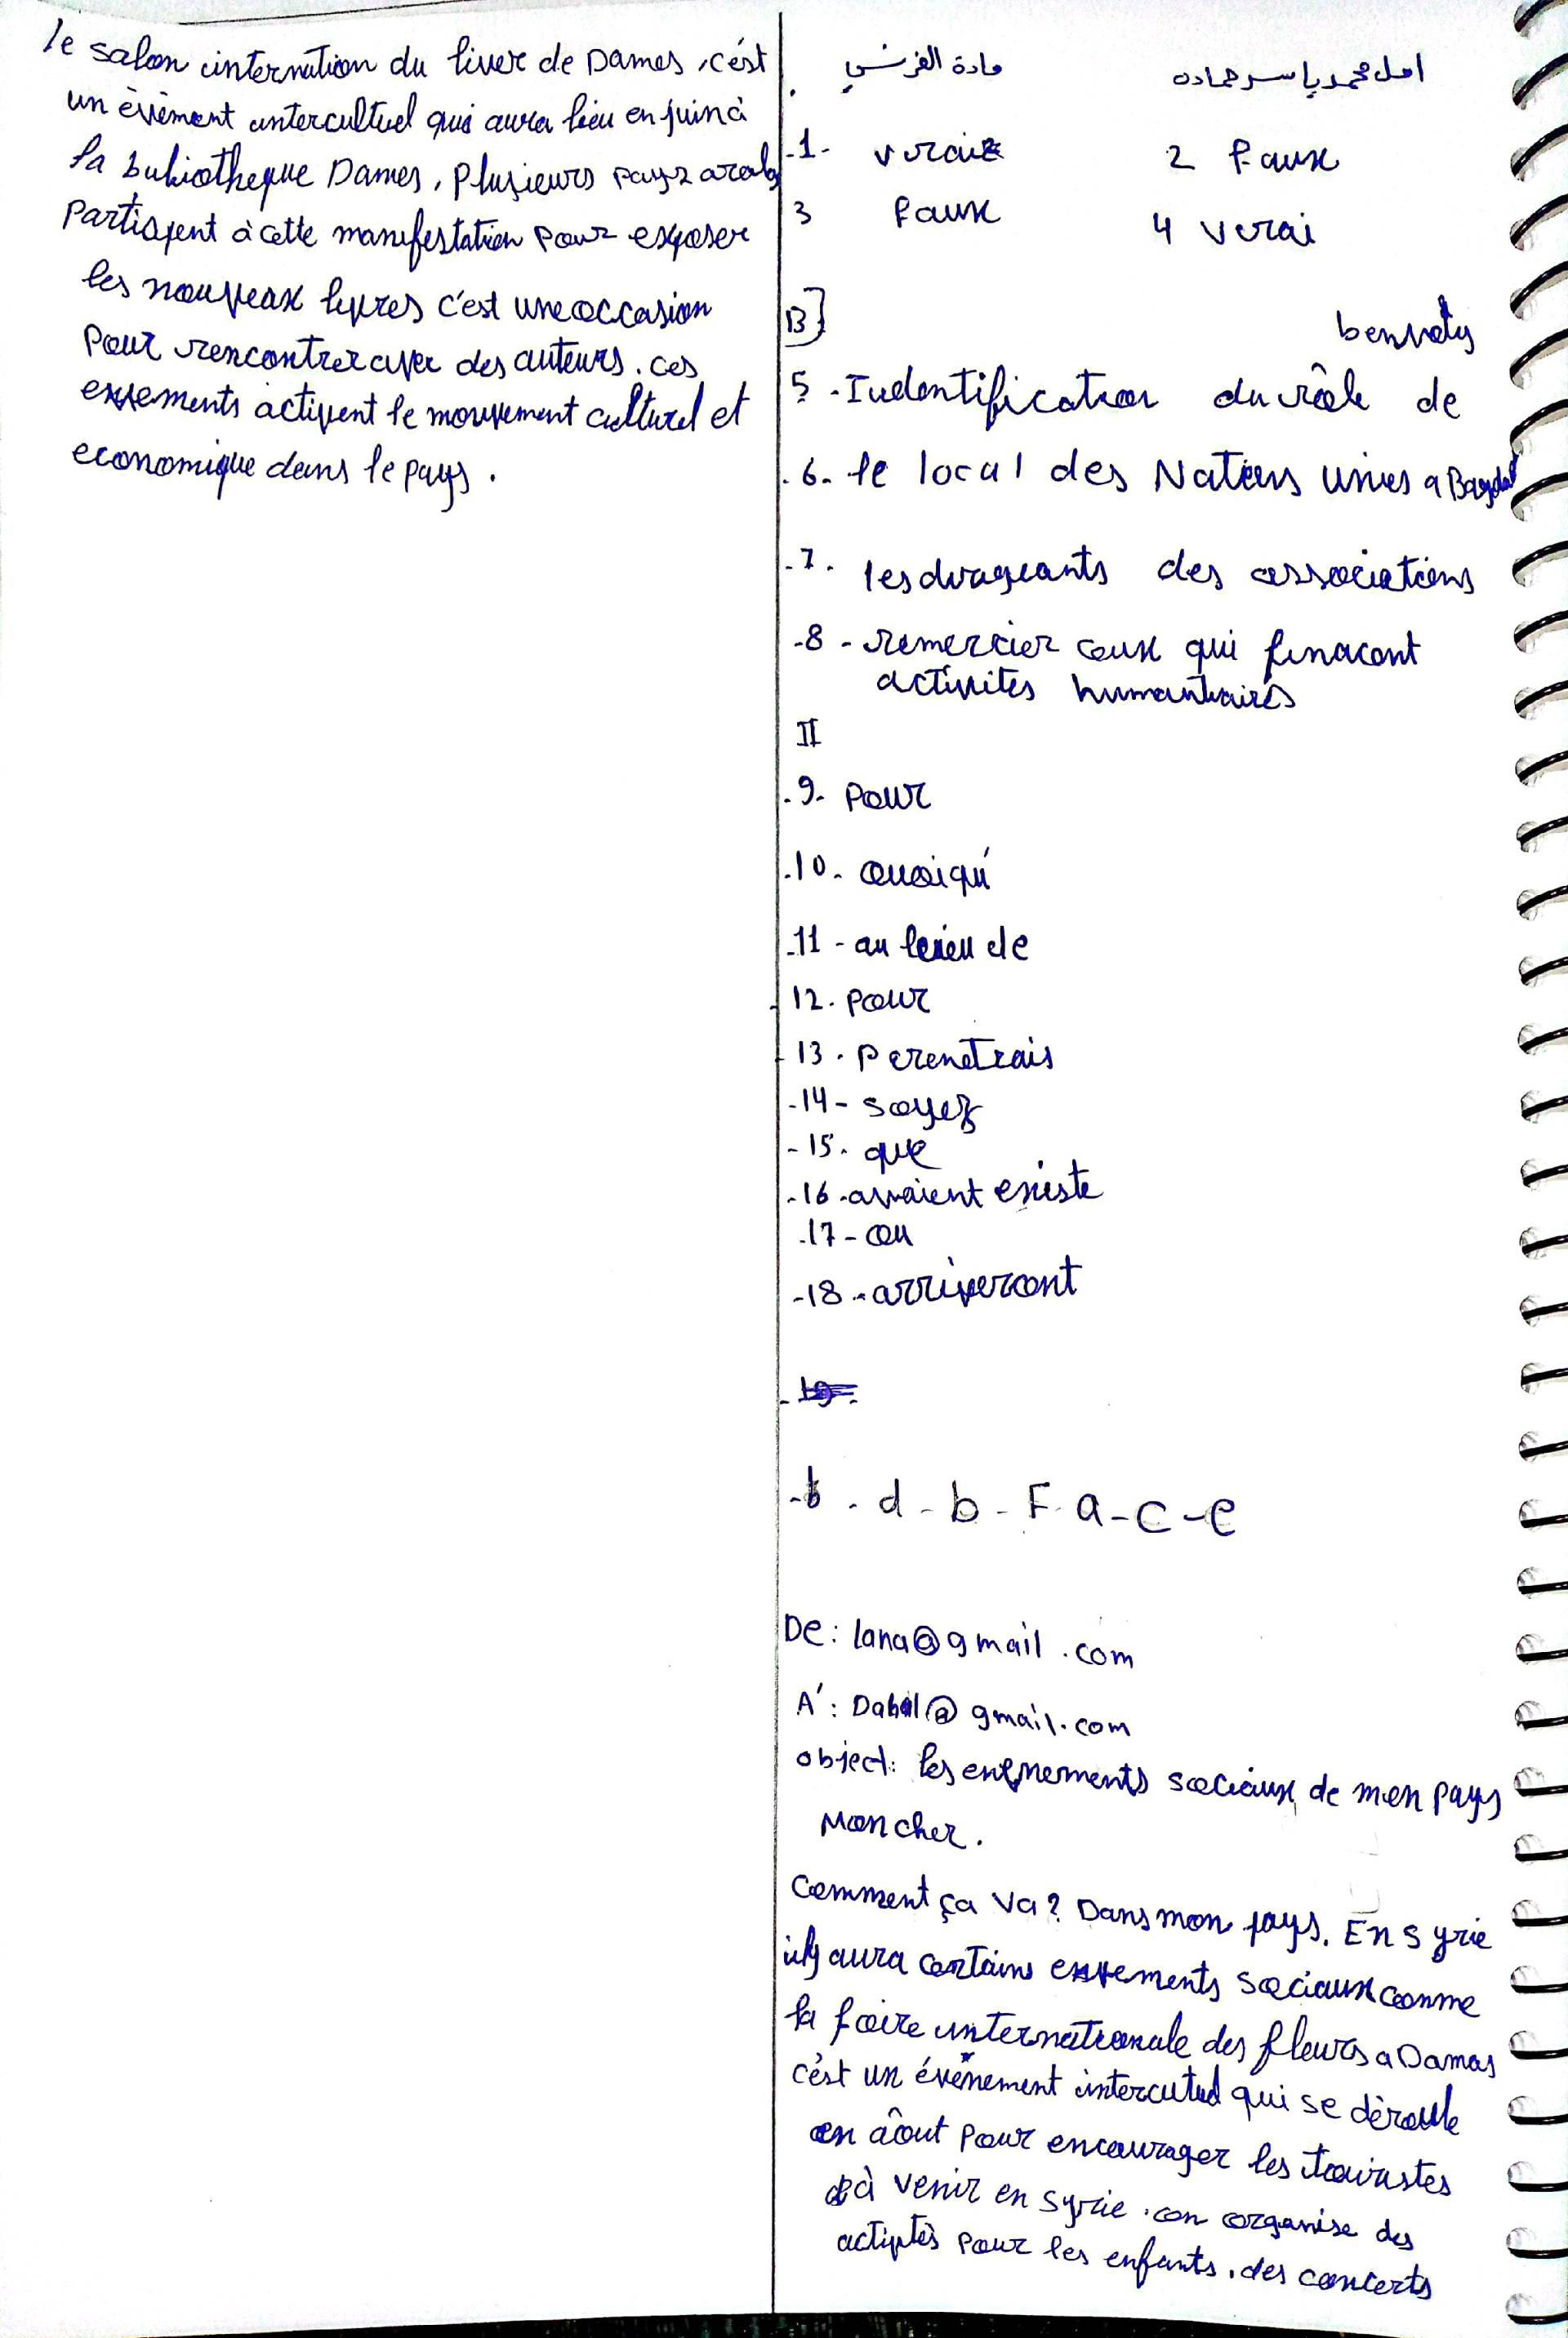 امل محمد ياسر حماده
مادة الفرنسي
-1- vraie
2 faux
3 faux
4 vrai
B]
benvoly
5-Iudentification du rôle de
.6- le local des Nations unies a Bagdad
-7. les dirageants des associations
-8- remercier ceux qui finacont
activites humantuaires
II
.9- pour
.10- quoiqu'
-11- au leieu de
12. pour
13. perenetrais
-14- soyez
-15. que
-16-avaient existe
-17- ou
-18-arriveront
-b. d-b-F-a-c-e
De: lana@gmail.com
A': Dabal@gmail.com
object: les evenements sociaux de mon pays
Mon cher.
comment ça va? Dans mon pays. En syrie
ily aura certains evements sociaux comme
la foire internationale des fleurs a Damas
c'est un événement intercuturel qui se déroule
en août pour encourager les touristes
à venir en syrie. on organise des
activités pour les enfants, des concerts
le salon internation du livre de Dames, c'est
un èvèment interculturel qui aura lieu en juin à
la bubiotheque Dames, plusieurs pays arabs
partispent à cette manifestation pour exposer
les nouveax livres c'est une occasion
pour rencontrer avec des auteurs. ces
evements activent le mouvement culturel et
economique dans le pays.